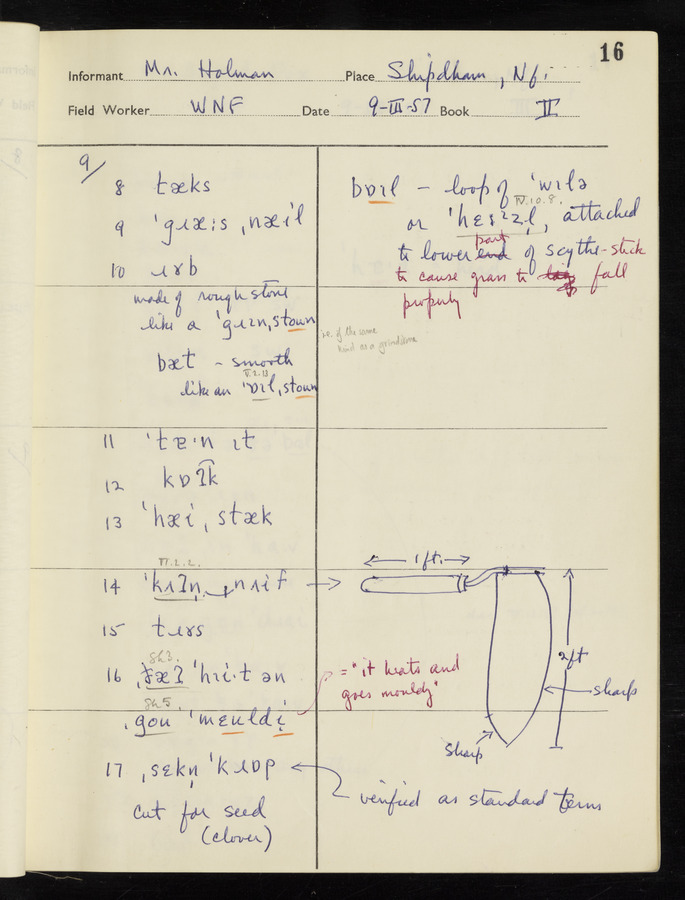 16
Informant Mr. Holman Place Shipdham, Nf.
Field Worker WNF Date 9-III-57 Book II
9/
8 tæks
9 ˈgɹæːs ˌnæiˑl
10 ɹɪb
made of rough stone
like a ˈgɹɪnˌstoun
bæt – smooth
V.2.13
like an ˈɒɪlˌstoun
11 ˈtɐˑn ɪt
12 kɒʔk
13 ˈhæiˌstæk
VI.2.2.
14 ˈkʌʔn̩ˌnʌif →
15 tɪɹs
862.
16 ˈhɪiˑt ən
865
ˌgou ˈmɛuldi
17 ˌsɛkn̩ ˈkɹɒp
cut for seed
(clover)
bɒɪl – loop of ˈwɪlə
IV.10.8.
or ˈhɛizl̩, attached
to lower end part of scythe-stick
to cause grass to fall
properly
i.e. of the same
kind as a grindstone
← 1ft. →
2ft
sharp
sharp
= "it heats and
goes mouldy"
verified as standard terms